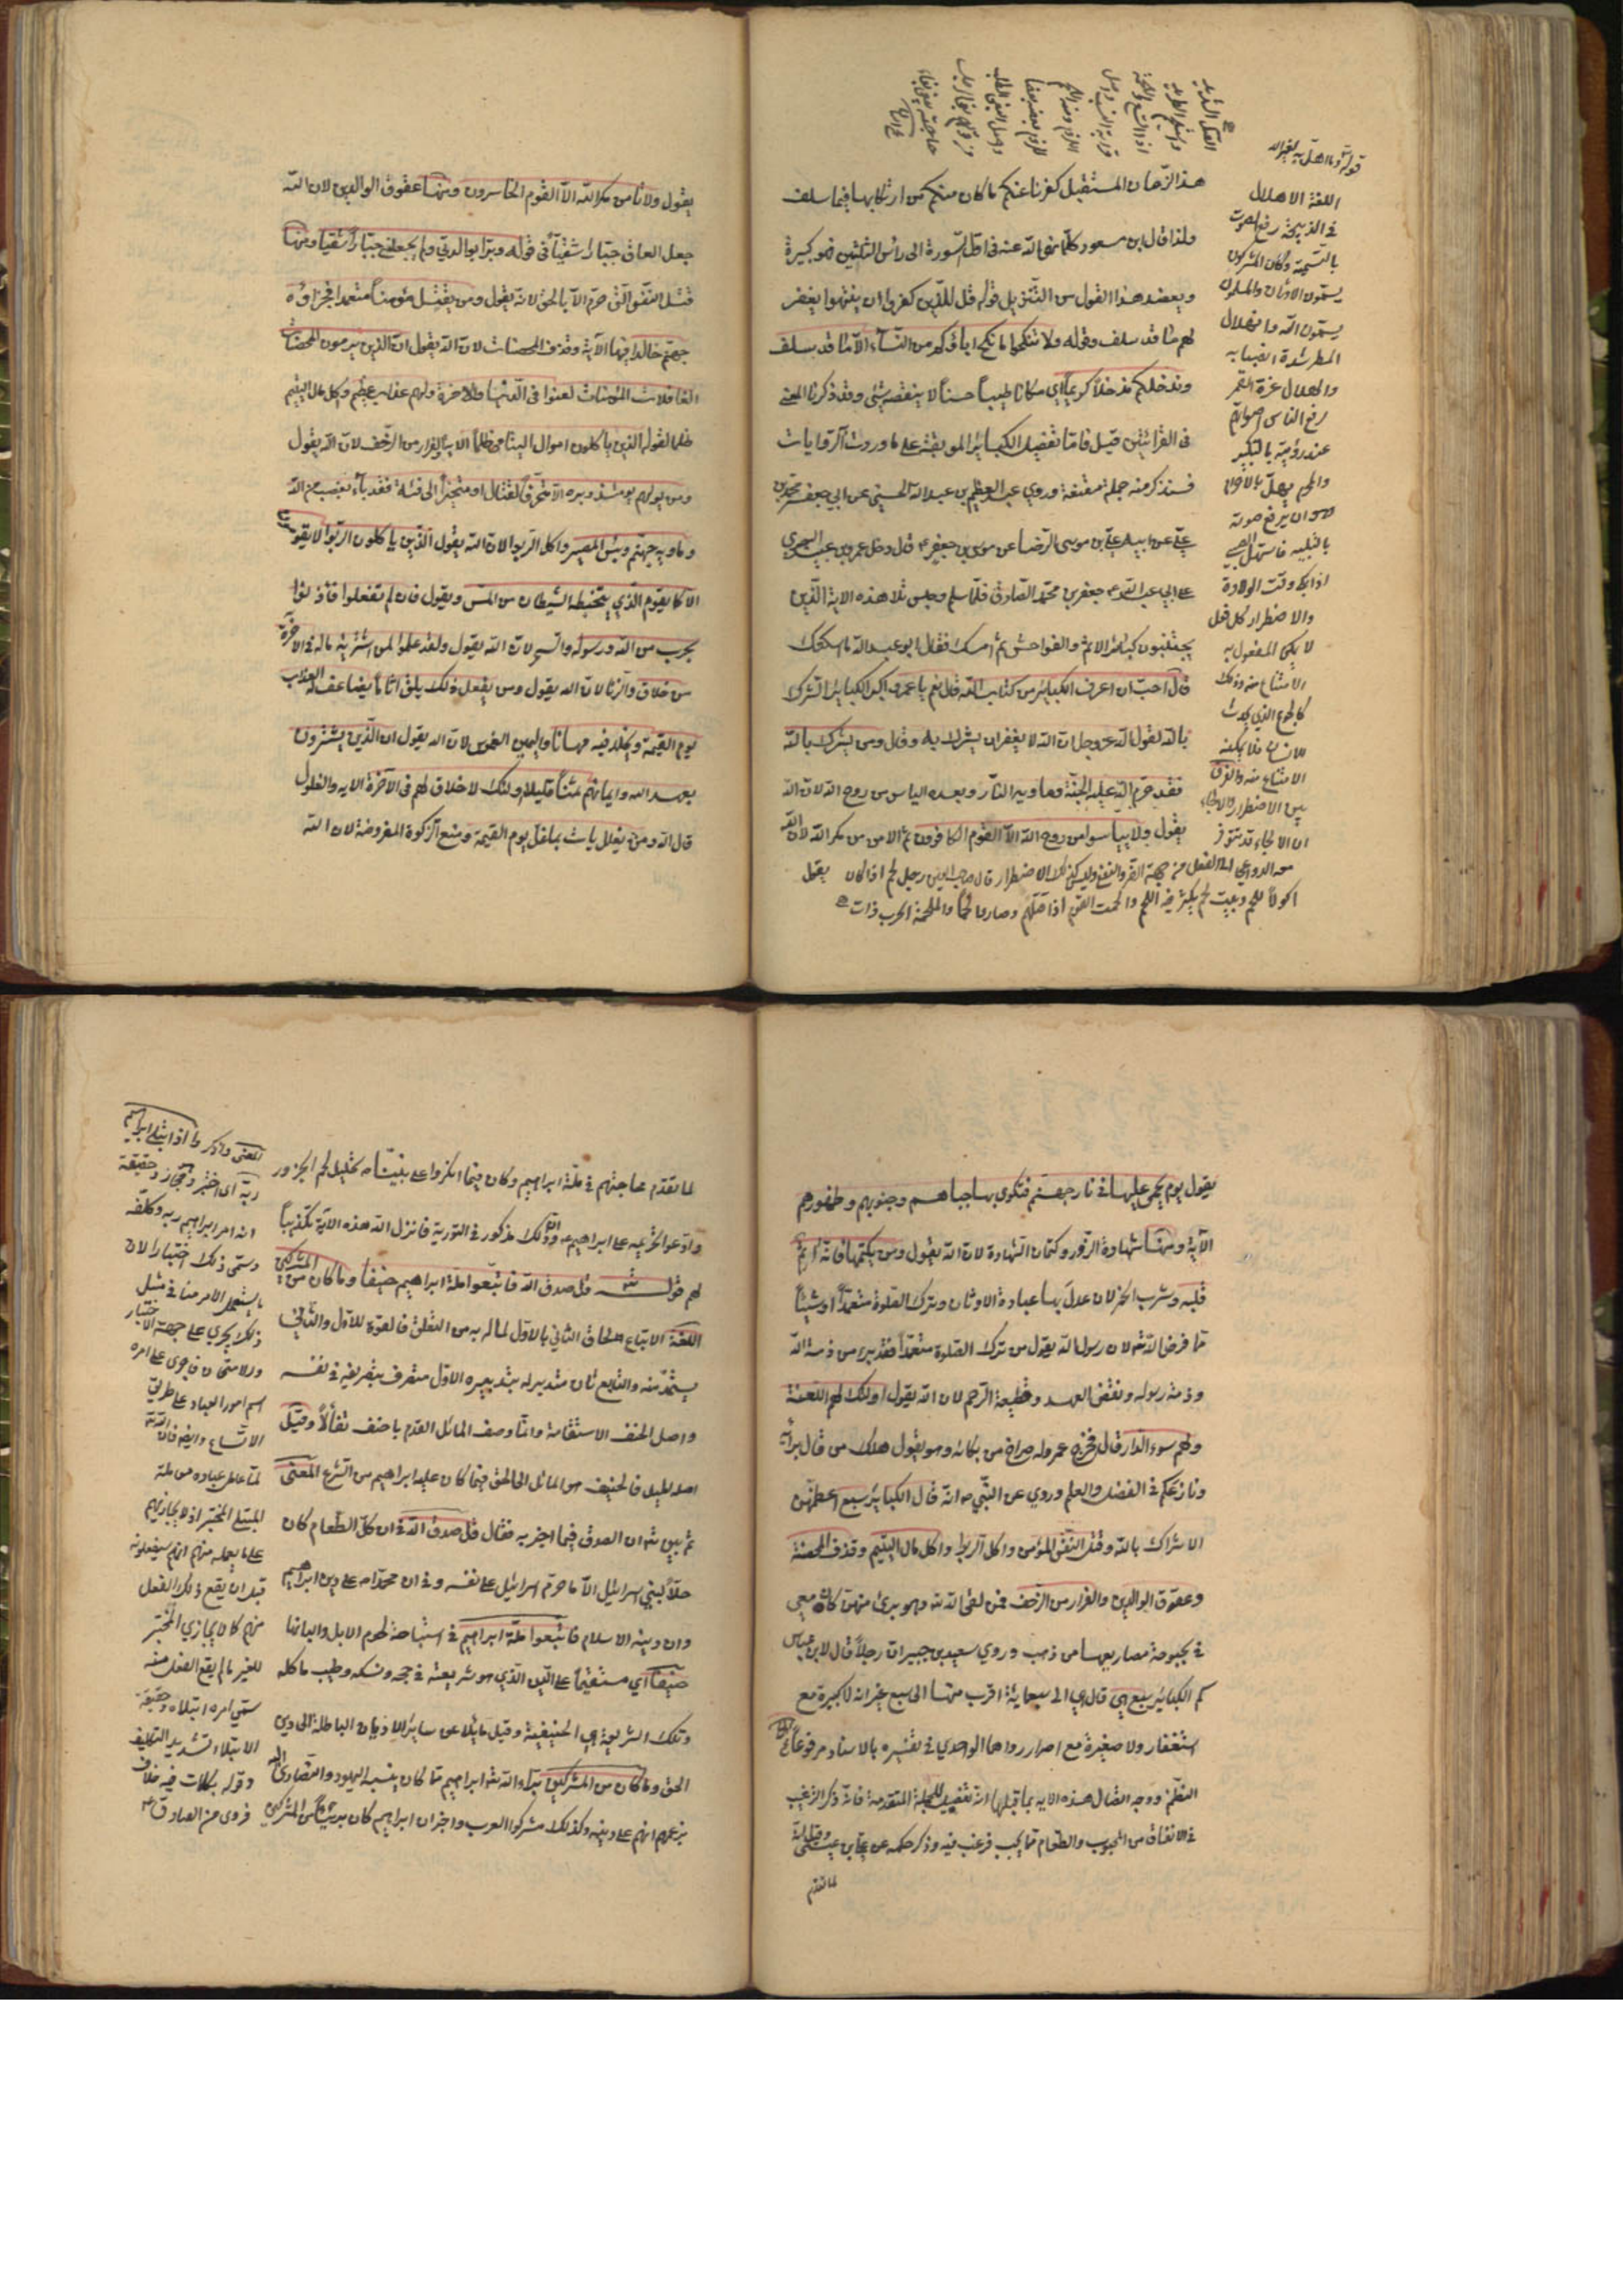 هذا الزمان المستقبل كفرنا عنكم ما كان منكم من ارتكابها فيما سلف
ولذا قال ابن مسعود كلما نهى الله عنه في اول السورة الى رأس الثلثين فهو كبيرة
ويعضد هذا القول من التنزيل قوله قل للذين كفروا ان ينتهوا يغفر
لهم ما قد سلف وقوله ولا تنكحوا ما نكح اباؤكم من النساء الا ما قد سلف
وندخلكم مدخلا كريما اي مكانا طيبا حسنا لا ينقصه شئ وقد ذكرنا المعنى
في القرائتين قبل فاما تفصيل الكبائر الموبقة على ما وردت به الروايات
فسنذكر منه جملة مقنعة وروي عبد العظيم بن عبد الله الحسني عن ابي جعفر محمد بن
علي عن ابيه علي بن موسى الرضا عن موسى بن جعفر ع قال دخل عمرو بن عبيد البصري
على ابي عبد الله ع جعفر بن محمد الصادق فلما سلم وجلس تلا هذه الاية الذين
يجتنبون كبائر الاثم والفواحش ثم امسك فقال ابو عبد الله ما اسكتك
قال احب ان اعرف الكبائر من كتاب الله قال نعم يا عمرو اكبر الكبائر الشرك
بالله لقول الله عز وجل ان الله لا يغفر ان يشرك به وقال ومن يشرك بالله
فقد حرم الله عليه الجنة وماويه النار وبعده الياس من روح الله لان الله
يقول ولا تيأسوا من روح الله الا القوم الكافرون ثم الامن من مكر الله لان الله
يقول
قوله وما اهل به لغير الله
اللغة الاهلال
في الذبيحة رفع الصوت
بالتسمية وكان المشركون
يسمون الاوثان والمسلمون
يسمون الله وانهلال
المطر شدة انصبابه
والهلال غرة القمر
رفع الناس اصواتهم
عند رؤيته بالتكبير
والمحرم يهل بالاحرام
وهو ان يرفع صوته
بالتلبية واستهل الصبي
اذا بكى وقت الولادة
والاضطرار كل فعل
لا يمكن المفعول به
الامتناع منه وذلك
كالجوع الذي يحدث
للانسان فلا يمكنه
الامتناع منه والفرق
بين الاضطرار والالجاء
ان الالجاء قد يتوفر
معه الدواعي الى الفعل من جهة الضر والنفع وليس كذلك الاضطرار قال صاحب العين رجل لحم اذا كان
اكولا للحم وبيت لحم يكثر فيه اللحم والحمت القوم اذا قتلتهم وصاروا لحما والملحمة الحرب ذات
القتل الشديد
يقول ولا يأمن مكر الله الا القوم الخاسرون ومنها عقوق الوالدين لان الله
جعل العاق جبارا شقيا في قوله وبرا بوالدتي ولم يجعلني جبارا شقيا ومنها
قتل النفس التي حرم الله الا بالحق لانه يقول ومن يقتل مؤمنا متعمدا فجزاؤه
جهنم خالدا فيها الآية وقذف المحصنات لان الله يقول ان الذين يرمون المحصنات
الغافلات المؤمنات لعنوا في الدنيا والاخرة ولهم عذاب عظيم واكل مال اليتيم
ظلما لقوله الذين يأكلون اموال اليتامى ظلما الاية والفرار من الزحف لان الله يقول
ومن يولهم يومئذ دبره الا متحرفا لقتال او متحيزا الى فئة فقد باء بغضب من الله
وماويه جهنم وبئس المصير واكل الربوا لان الله يقول الذين ياكلون الربوا لا يقومون
الا كما يقوم الذي يتخبطه الشيطان من المس ويقول فان لم تفعلوا فأذنوا
بحرب من الله ورسوله والسحر لان الله يقول ولقد علموا لمن اشتريه ماله في الاخرة
من خلاق والزنا لان الله يقول ومن يفعل ذلك يلق اثاما يضاعف له العذاب
يوم القيمة ويخلد فيه مهانا واليمين الغموس لان الله يقول ان الذين يشترون
بعهد الله وايمانهم ثمنا قليلا اولئك لا خلاق لهم في الآخرة الايه والغلول
قال الله ومن يغلل يات بما غل يوم القيمة ومنع الزكوة المفروضة لان الله
يقول يوم يحمى عليها في نار جهنم فتكوى بها جباههم وجنوبهم وظهورهم
الآية ومنها شهادة الزور وكتمان الشهادة لان الله يقول ومن يكتمها فانه آثم
قلبه وشرب الخمر لان عدل بها عبادة الاوثان وترك الصلوة متعمدا او شيئا
مما فرض الله لان رسول الله يقول من ترك الصلوة متعمدا فقد برئ من ذمة الله
وذمة رسوله ونقض العهد وقطيعة الرحم لان الله يقول اولئك لهم اللعنة
ولهم سوء الدار قال فخرج عمرو له صراخ من بكائه وهو يقول هلك من قال برأيه
ونازعكم في الفضل والعلم وروي عن النبي ص انه قال الكبائر سبع اعظمهن
الاشراك بالله وقتل النفس المؤمن واكل الربوا واكل مال اليتيم وقذف المحصنة
وعقوق الوالدين والفرار من الزحف فمن لقى الله وهو برئ منهن كان معي
في بحبوحة مصاريعها من ذهب وروي سعيد بن جبير ان رجلا قال لابن عباس
كم الكبائر سبع هي قال هي الى سبعماية اقرب منها الى سبع غير انه لا كبيرة مع
استغفار ولا صغيرة مع اصرار رواهما الواحدي في تفسيره بالاسناد مرفوعا
النظم ووجه اتصال هذه الايه بما قبلها انه تفصيل للجملة المتقدمة فانه ذكر الترغيب
في الانفاق من المحبوب والطعام مما يحب فرغب فيه وذكر حكمه عن علي بن عيسى وقيل انه
لما تقدم
لما تقدم محاجتهم في ملة ابراهيم وكان فيما انكروا على نبينا ص تحليل لحم الجزور
وادعوا تحريمه على ابراهيم ع وان ذلك مذكور في التورية فانزل الله هذه الآية تكذيبا
لهم قوله قل صدق الله فاتبعوا ملة ابراهيم حنيفا وما كان من المشركين
اللغة الاتباع الحاق الثاني بالاول لما له به من التعلق فالقوة للاول والثاني
يستمد منه والتابع ثان متدبر له بتدبيره الاول متصرف بتصريفه في نفسه
واصل الحنف الاستقامة وانما وصف المائل القدم باحنف تفألا وقيل
اصله الميل فالحنيف هو المائل الى الحق فيما كان عليه ابراهيم من الشرع المعنى
ثم بين ان الصدق فيما اخبر به فقال قل صدق الله في ان كل الطعام كان
حلا لبني اسرائيل الا ما حرم اسرائيل على نفسه وفي ان محمدا ص على دين ابراهيم
وان دينه الاسلام فاتبعوا ملة ابراهيم في استباحة لحوم الابل والبانها
حنيفا اي مستقيما على الدين الذي هو شريعته في حجه ونسكه وطيب ماكله
وتلك الشريعة هي الحنيفية وقيل مايلا عن سائر الاديان الباطلة الى دين
الحق وما كان من المشركين برأ الله ابراهيم مما كان ينسبه اليهود والنصارى اليه
بزعمهم انهم على دينه وكذلك مشركوا العرب واخبر ان ابراهيم كان بريئا من المشركين
المعنى واذكر واذ ابتلى ابراهيم
ربه اي اختبر وهو مجاز وحقيقته
انه امر ابراهيم ربه وكلفه
وسمى ذلك اختبارا لان
ما يستعمل الامر منا في مثل
ذلك يجري على جهة الاختبار
والامتحان فاجرى على امره
اسم امور العباد على طريق
الاتساع وايضا فان الله
لما عامل عباده معاملة
المبتلى المختبر اذ لا يجازيهم
على ما يعلمه منهم انهم سيفعلونه
قبل ان يقع ذلك الفعل
منهم كما لا يجازي المختبر
للغير ما لم يقع الفعل منه
سمي امره ابتلاء وحقيقة
الابتلاء تشديد التكليف
وقوله بكلمات فيه خلاف
فروى عن الصادق ع